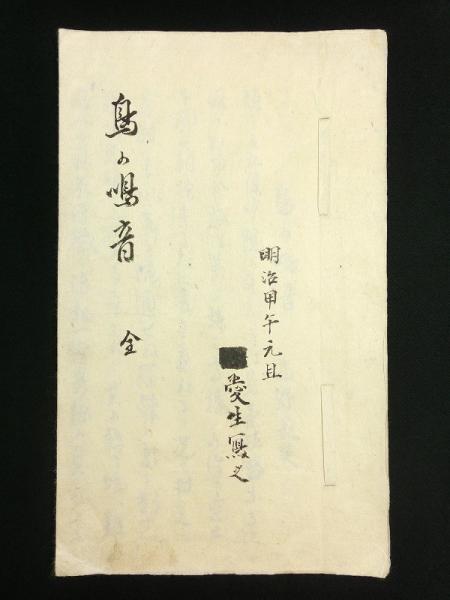 明治甲午元旦
愛生寫之
鳥の鳴音 全